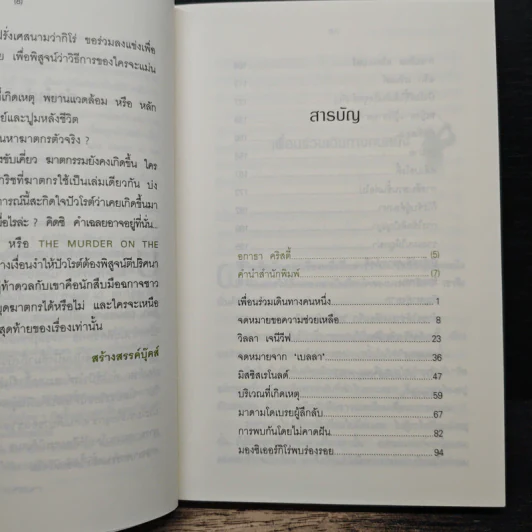 ปรั่งเศสนามว่ากิโร่ ขอร่วมลงแข่งเพื่อ
เพื่อพิสูจน์ว่าวิธีการของใครจะแม่น
ที่เกิดเหตุ พยานแวดล้อม หรือ หลัก
และปูมหลังชีวิต
หาฆาตกรตัวจริง ?
ขับเคี่ยว ฆาตกรรมยังคงเกิดขึ้น ใคร
กริชที่ฆาตกรใช้เป็นเล่มเดียวกัน บ่ง
การณ์นี้สะกิดใจปัวโรต์ว่าเคยเกิดขึ้นมา
ไรล่ะ ? คิดซิ คำเฉลยอาจอยู่ที่นั่น...
หรือ THE MURDER ON THE
างเงื่อนงำให้ปัวโรต์ต้องพิสูจน์ตีปริศนา
ท้าดวลกับเขาคือนักสืบมือฉกาจชาว
ฆาตกรได้หรือไม่ และใครจะเหนือ
สุดท้ายของเรื่องเท่านั้น
สร้างสรรค์บุ๊คส์
สารบัญ
อกาธา คริสตี้ (5)
คำนำสำนักพิมพ์ (7)
เพื่อนร่วมเดินทางคนหนึ่ง 1
จดหมายขอความช่วยเหลือ 8
วิลลา เจนีวีฟ 23
จดหมายจาก 'เบลลา' 36
มิสซิสเรโนลด์ 47
บริเวณที่เกิดเหตุ 59
มาดามโดเบรยผู้ลึกลับ 67
การพบกันโดยไม่คาดฝัน 82
มองซิเออร์กิโร่พบร่องรอย 94